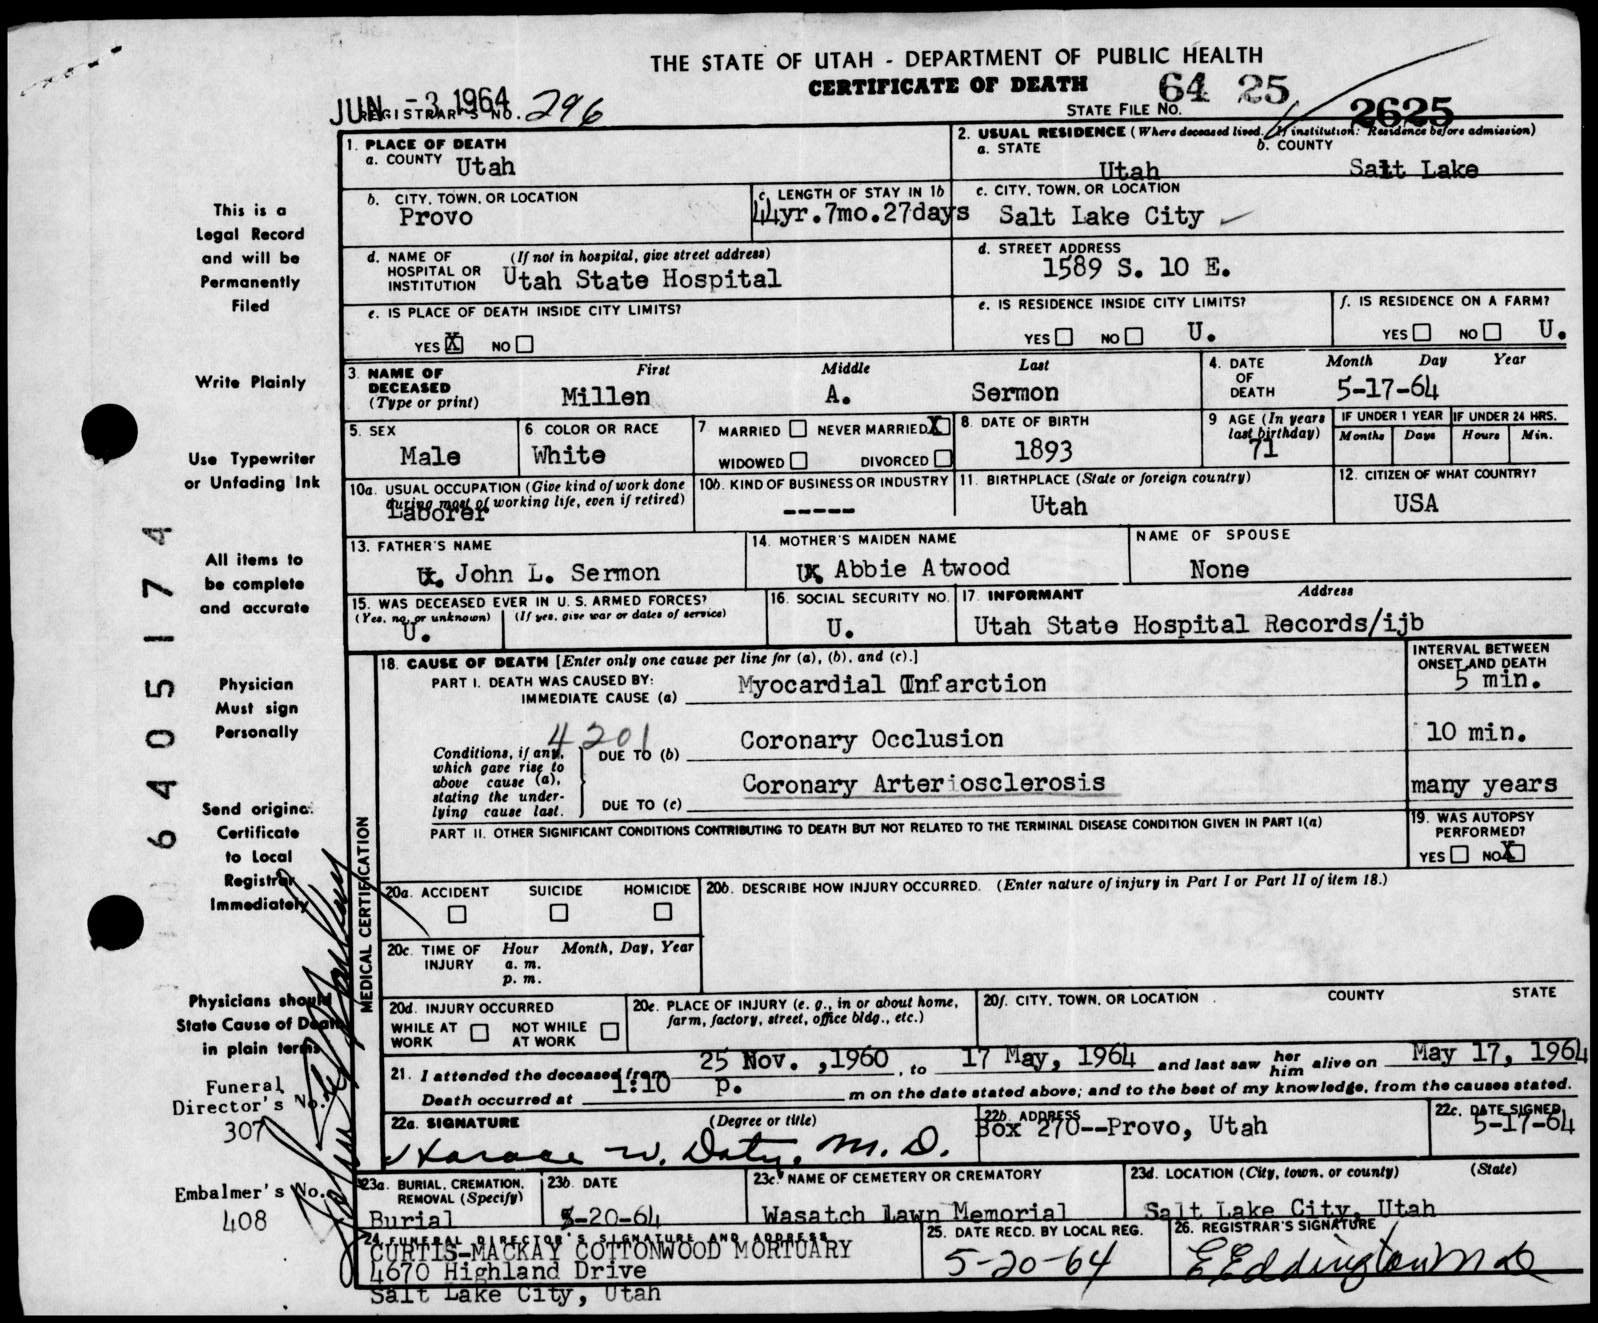 THE STATE OF UTAH - DEPARTMENT OF PUBLIC HEALTH
CERTIFICATE OF DEATH 64 25
JUN -3 1964
REGISTRAR'S NO. 296
STATE FILE NO. 2625
1. PLACE OF DEATH
a. COUNTY Utah
2. USUAL RESIDENCE (Where deceased lived. If institution: Residence before admission)
a. STATE Utah
b. COUNTY Salt Lake
b. CITY, TOWN, OR LOCATION
Provo
c. LENGTH OF STAY IN 1b
44yr.7mo.27days
c. CITY, TOWN, OR LOCATION
Salt Lake City
d. NAME OF HOSPITAL OR INSTITUTION (If not in hospital, give street address)
Utah State Hospital
d. STREET ADDRESS
1589 S. 10 E.
e. IS PLACE OF DEATH INSIDE CITY LIMITS?
YES X NO
e. IS RESIDENCE INSIDE CITY LIMITS?
YES NO U.
f. IS RESIDENCE ON A FARM?
YES NO U.
3. NAME OF DECEASED (Type or print)
First Middle Last
Millen A. Sermon
4. DATE OF DEATH
Month Day Year
5-17-64
5. SEX
Male
6. COLOR OR RACE
White
7 MARRIED NEVER MARRIED X
WIDOWED DIVORCED
8. DATE OF BIRTH
1893
9 AGE (In years last birthday)
71
IF UNDER 1 YEAR
Months Days
IF UNDER 24 HRS.
Hours Min.
10a. USUAL OCCUPATION (Give kind of work done during most of working life, even if retired)
Laborer
10b. KIND OF BUSINESS OR INDUSTRY
-----
11. BIRTHPLACE (State or foreign country)
Utah
12. CITIZEN OF WHAT COUNTRY?
USA
13. FATHER'S NAME
John L. Sermon
14. MOTHER'S MAIDEN NAME
Abbie Atwood
NAME OF SPOUSE
None
15. WAS DECEASED EVER IN U. S. ARMED FORCES?
(Yes, no, or unknown) (If yes, give war or dates of service)
U.
16. SOCIAL SECURITY NO.
U.
17. INFORMANT Address
Utah State Hospital Records/ijb
MEDICAL CERTIFICATION
18. CAUSE OF DEATH [Enter only one cause per line for (a), (b), and (c).]
PART I. DEATH WAS CAUSED BY:
IMMEDIATE CAUSE (a) Myocardial Infarction
INTERVAL BETWEEN ONSET AND DEATH
5 min.
4201
Conditions, if any, which gave rise to above cause (a), stating the underlying cause last.
DUE TO (b) Coronary Occlusion 10 min.
DUE TO (c) Coronary Arteriosclerosis many years
PART II. OTHER SIGNIFICANT CONDITIONS CONTRIBUTING TO DEATH BUT NOT RELATED TO THE TERMINAL DISEASE CONDITION GIVEN IN PART I(a)
19. WAS AUTOPSY PERFORMED?
YES NO X
20a. ACCIDENT SUICIDE HOMICIDE
20b. DESCRIBE HOW INJURY OCCURRED. (Enter nature of injury in Part I or Part II of item 18.)
20c. TIME OF INJURY Hour Month, Day, Year
a. m.
p. m.
20d. INJURY OCCURRED
WHILE AT WORK NOT WHILE AT WORK
20e. PLACE OF INJURY (e. g., in or about home, farm, factory, street, office bldg., etc.)
20f. CITY, TOWN, OR LOCATION COUNTY STATE
21. I attended the deceased from 25 Nov. ,1960, to 17 May, 1964 and last saw her him alive on May 17, 1964
Death occurred at 1:10 p. m on the date stated above; and to the best of my knowledge, from the causes stated.
22a. SIGNATURE (Degree or title)
Horace W. Doty, M. D.
22b. ADDRESS
Box 270--Provo, Utah
22c. DATE SIGNED
5-17-64
23a. BURIAL, CREMATION, REMOVAL (Specify)
Burial
23b. DATE
5-20-64
23c. NAME OF CEMETERY OR CREMATORY
Wasatch Lawn Memorial
23d. LOCATION (City, town, or county) (State)
Salt Lake City, Utah
24. FUNERAL DIRECTOR'S SIGNATURE AND ADDRESS
CURTIS-MACKAY COTTONWOOD MORTUARY
4670 Highland Drive
Salt Lake City, Utah
25. DATE RECD. BY LOCAL REG.
5-20-64
26. REGISTRAR'S SIGNATURE
E Eddington M D
This is a
Legal Record
and will be
Permanently
Filed
Write Plainly
Use Typewriter
or Unfading Ink
All items to
be complete
and accurate
Physician
Must sign
Personally
Send original
Certificate
to Local
Registrar
Immediately
Physicians should
State Cause of Death
in plain terms
Funeral
Director's No.
307
Embalmer's No.
408
64 05174